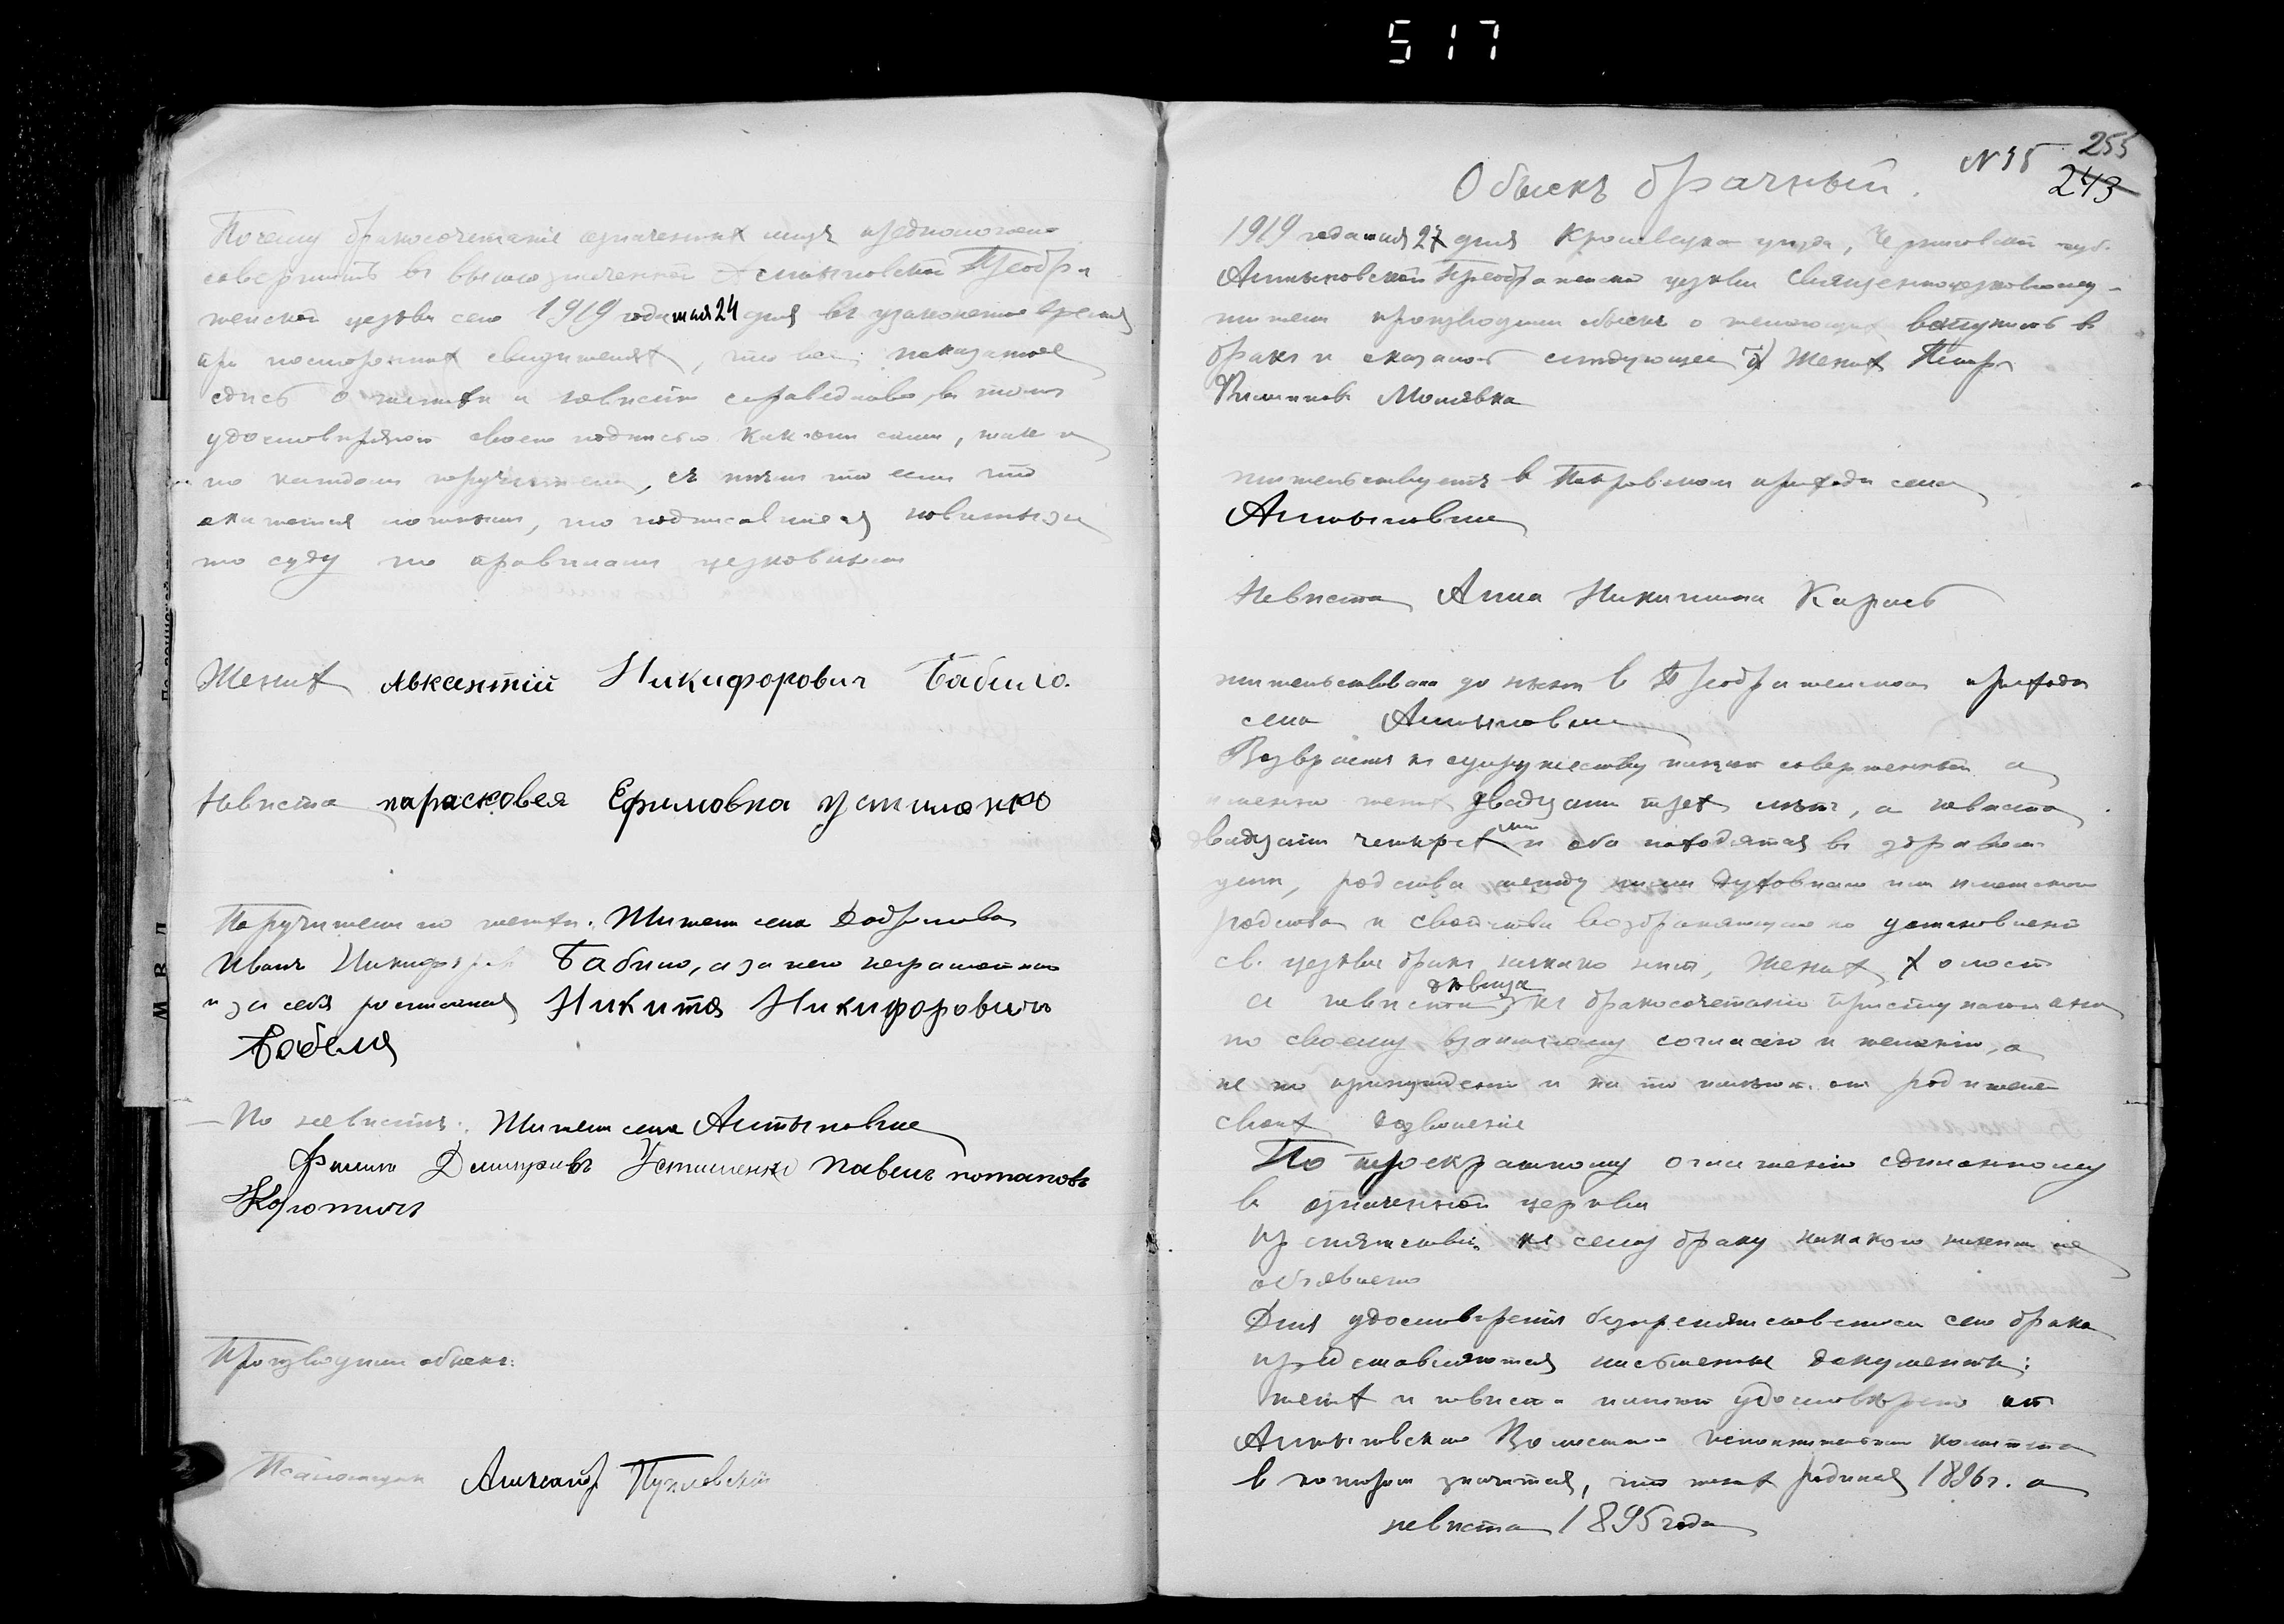 517
Почему бракосочетание означенных лицъ предположено
совершить въ вышеозначенной Алтыновской Преобра
женской церкви сего 1919 года мая 24 дня въ узаконенное время
при постороннихъ свидетеляхъ, что все показанное
здесь о женихе и невесте справедливо, в томъ
удостоверяют своею подписью как они сами, так и
по каждом поручители, съ тем что если что
окажется ложным, то подписавшиеся повинны за
то суду по правилам церковным
Жених Авксентий Никифорович Бабило.
Невеста парасковея Ефимовна устименко
Поручители по женихе: Жители села
Иванъ Никифоров Бабило, а за него неграмотного
и за себя росписался Никита Никифоровичъ
Бабело
По невесте: Жители села Алтыновки
Филип Дмитриевъ Устименко Павелъ потаповъ
Производили обыскъ:
Псаломщик Александр
N 35 255
243
Обыскъ брачный.
1919 года мая 27 дня Кролевецкаго уезда, Черниговской губ.
Алтыновской Преображенской церкви Священноцерковнослу-
жители производили обыскъ о желающих вступить в
бракъ и оказалось следующее 1) Жених Петр
Филиппов Малявка
жительствуетъ в Покровском приходе села
Алтыновки
Невеста Анна Никитина Карась
жительствовала до ныне в Преображенском приходе
села Алтыновки
Возврастъ к супружеству имеют совершенный а
именно жених двадцати трех летъ, а невеста
двадцати четырех лет и оба находятся въ здравом
уме, родства между ними духовнаго или плотского
родства и свойства возбраняющаго по установлению
св. церкви бракъ никакого нет, Жених холост
а невеста девица къ бракосочетанию приступают они
по своему взаимному согласию и желанию, а
не по принуждению и на то имеют от родителей
своих дозволение
По троекратному оглашению сделанному
в означенной церкви
препятствия къ сему браку никакого никем не
объявлено
Для удостоверения безпрепятственности сего брака
представляются письменные документы:
жених и невеста имеют удостоверение от
Алтыновского Волостного исполнительного комитета
в котором значится, что жених родился 1896 г. а
невеста 1895 года